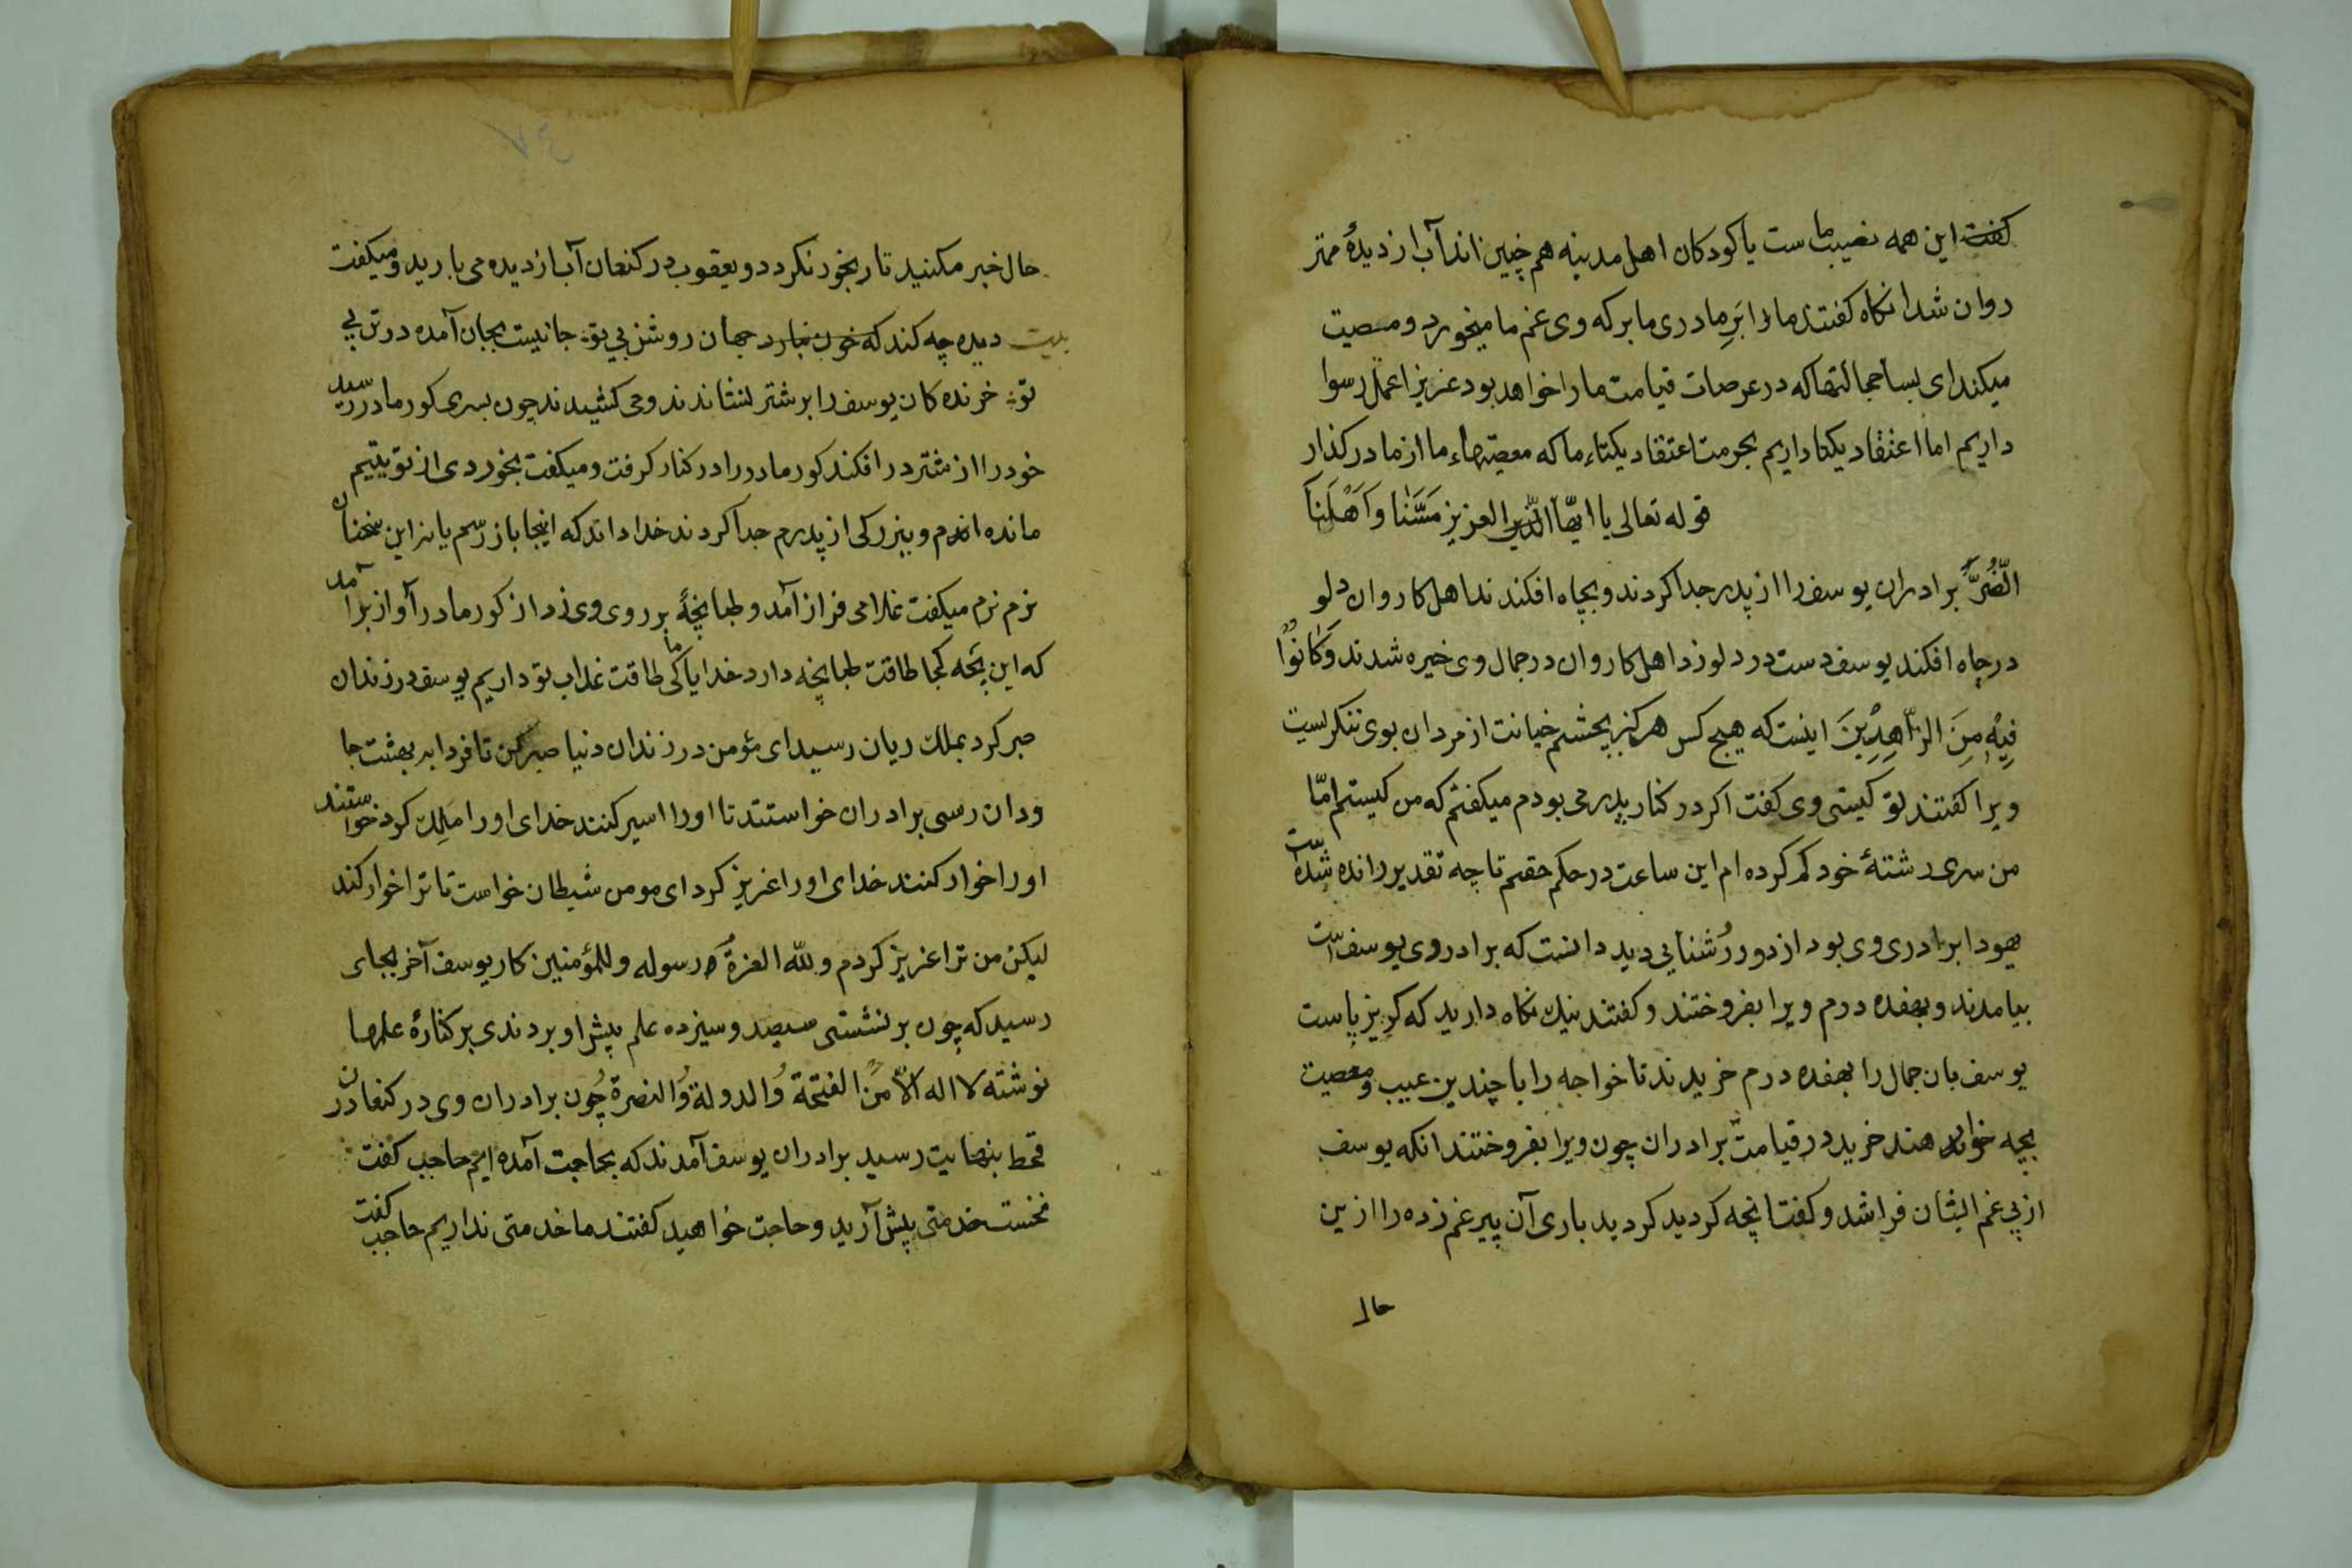 کفت این همه نصیب ماست یا کودکان اهل مدینه هم چنین اند آب از دیدهٔ مهتر
روان شد انکاه کفتند ما را بَرِ مادری ما بر که وی غم ما میخورد و مصیت
میکند ای بسا خجالتها که در عرصات قیامت ما را خواهد بود عزیزا عمل رسوا
داریم اما اعتقاد یکتا داریم بحرمت اعتقاد یکتاء ما که معصیتهاء ما از ما در کذار
قوله تعالی یا ایّها العزیز مَسَّنا وَاَهْلَنَا
الضُرَّ برادران یوسف را از پدر جدا کردند و بچاه افکندند اهل کاروان دلو
در چاه افکند یوسف دست در دلو زد اهل کاروان در جمال وی خیره شدند وَکَانوُا
فِیْهِ مِنَ الزّاهِدِیْنَ اینست که هیچ کس هرکز بچشم خیانت از مردان بوی ننکرلیست
ویرا کفتند تو کیستی وی کفت اکر در کنار پدر می بودم میکفتم که من کیستم امّا
من سری رشتهٔ خود کم کرده ام این ساعت در حکم حقم تا چه تقدیر رانده شده است
یهودا برادری وی بود از دور رُشنایی دید دانست که برادر وی یوسف است
بیامدند و بهفده درم ویرا بفروختند و کفتند نیك نکاه دارید که کریز پاست
یوسف بان جمال را بهفده درم خریدند تا خواجه را با چندین عیب و معصیت
بچه خواهند خرید در قیامت برادران چون ویرا بفروختند انکه یوسف
از پی غم ایشان فرا شد و کفت انچه کردید کردید باری آن پیر غم زده را ازین
حال
۷٤
حال خبر مکنید تا رنجور نکردد و یعقوب در کنعان آب از دیده می بارید و میکفت
بیت دیده چه کند که خون نبارد جهان روشن بی تو جانیست بجان آمده در تن بی
تو خرنده کان یوسف را بر شتر نشاندند و می کشیدند چون بسری کور مادر رسید
خود را از شتر در افکند کور مادر را در کنار کرفت و میکفت بخوردی از تو یتیم
مانده اندم و ببزرکی از پدرم جدا کردند خدا داند که اینجا باز رسم یا نه این سخنان
نرم نرم میکفت غلامی فراز آمد و طبانچهٔ بر روی وی زد از کور مادر آواز بر آمد
که این بچه کجا طاقت طبانچه دارد خدایا ما کی طاقت عذاب تو داریم یوسف در زندان
صبر کرد بملك ریان رسید ای مؤمن در زندان دنیا صبر کن تا فردا به بهشت جا
ودان رسی برادران خواستند تا اورا اسیر کنند خدای اورا مَلِك کرد خواستند
اورا خوار کنند خدای اورا عزیز کرد ای مومن شیطان خواست تا ترا خوار کند
لیکن من ترا عزیز کردم ولله العزةُ و رسوله وللمؤمنین کار یوسف آخر بجای
رسید که چون بر نشستی سیصد و سیزده علم پیش او بردندی بر کنارهٔ علمها
نوشته لا اله الاّ الفتحة وُالدولة وُالنصرة چُون برادران وی در کنعان در
قحط بنهایت رسید برادران یوسف آمدند که بحاجت آمده ایم حاجب کفت
نخست خدمتی پیش آرید و حاجت خواهید کفتند ما خدمتی نداریم حاجب کفت